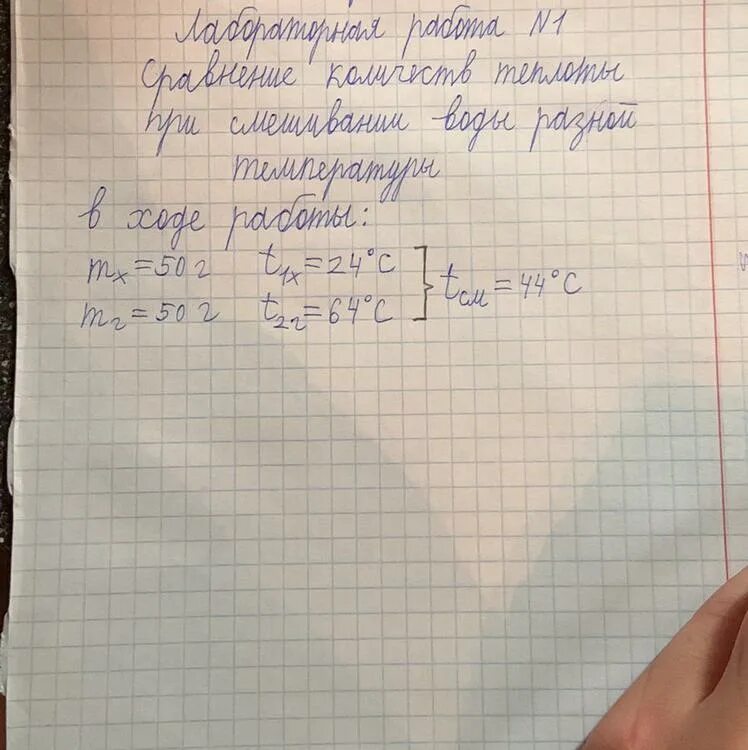 Лабораторная работа N1
Сравнение количеств теплоты
при смешивании воды разной
температуры
в ходе работы:
mх=50 г t1х=24°С
tсм=44°С
mг=50 г t2г=64°С